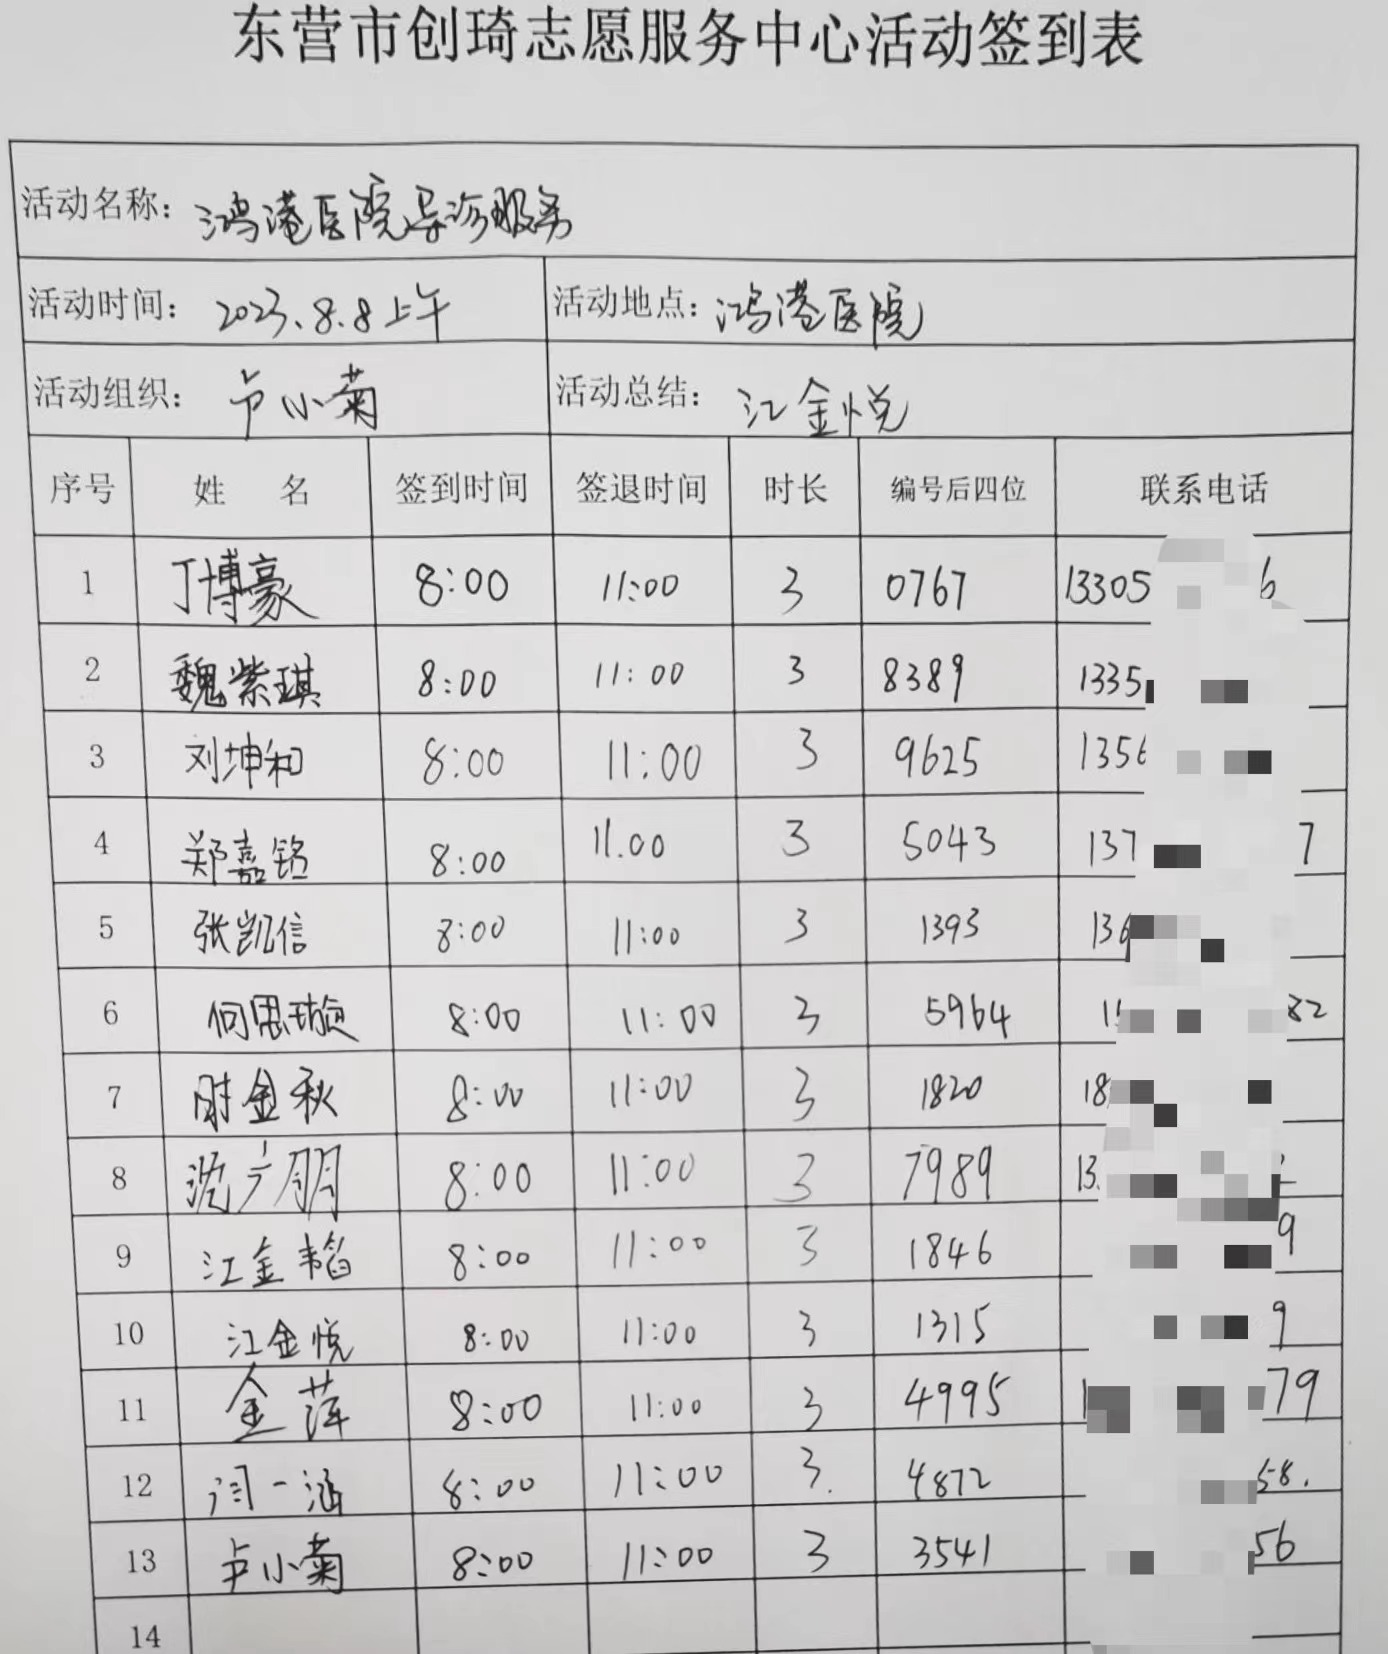 东营市创琦志愿服务中心活动签到表
活动名称：鸿港医院导诊服务
活动时间：2023.8.8上午 活动地点：鸿港医院
活动组织：卢小菊 活动总结：江金悦
序号 姓 名 签到时间 签退时间 时长 编号后四位 联系电话
1 丁博豪 8:00 11:00 3 0767 13305 6
2 魏紫琪 8:00 11:00 3 8389 1335
3 刘坤和 8:00 11:00 3 9625 1356
4 郑嘉铭 8:00 11.00 3 5043 137 7
5 张凯信 8:00 11:00 3 1393 136
6 何思璇 8:00 11:00 3 5964 15 82
7 金秋 8:00 11:00 3 1820 18
8 沈广朋 8:00 11:00 3 7989 13
9 江金韬 8:00 11:00 3 1846 9
10 江金悦 8:00 11:00 3 1315 9
11 金萍 8:00 11:00 3 4995 1 79
12 闫一涵 8:00 11:00 3. 4872 58.
13 卢小菊 8:00 11:00 3 3541 56
14